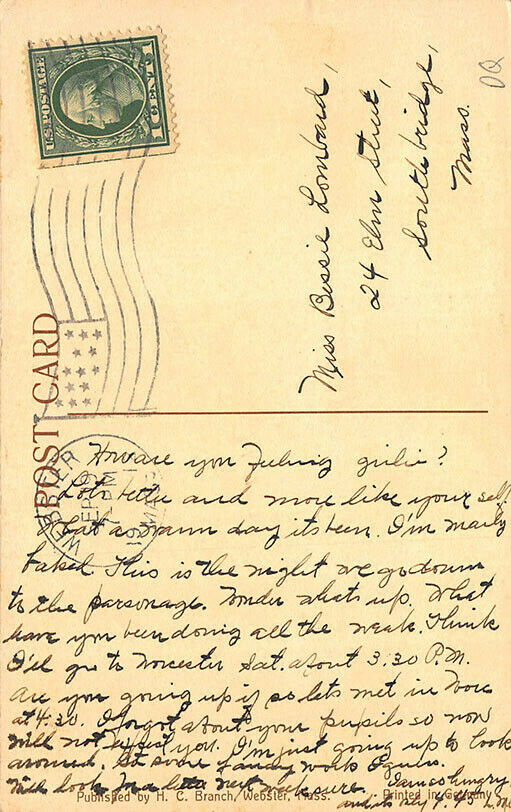 U.S. POSTAGE
1 CENT 1
POST CARD
WEBSTER
SEP 19
PM
19
MASS.
DQ
Miss Bessie Lombard,
24 Elm Street,
Southbridge,
Mass.
How are you feeling girlie?
Lots better and more like your self.
What a warm day its been. I'm nearly
baked. This is the night we go down
to the parsonage. Wonder whats up. What
have you been doing all the weak. Think
I'll go to Worcester Sat. about 3.30 P.M.
Are you going up if so lets met in Worc
at 4:30. I forgot about your pupils so now
will not expect you. I'm just going up to look
around. Get some fancy work
Will look for a letter next week sure. I am so hungry
and its only
Published by H. C. Branch, Webster, Mass.
Printed in Germany